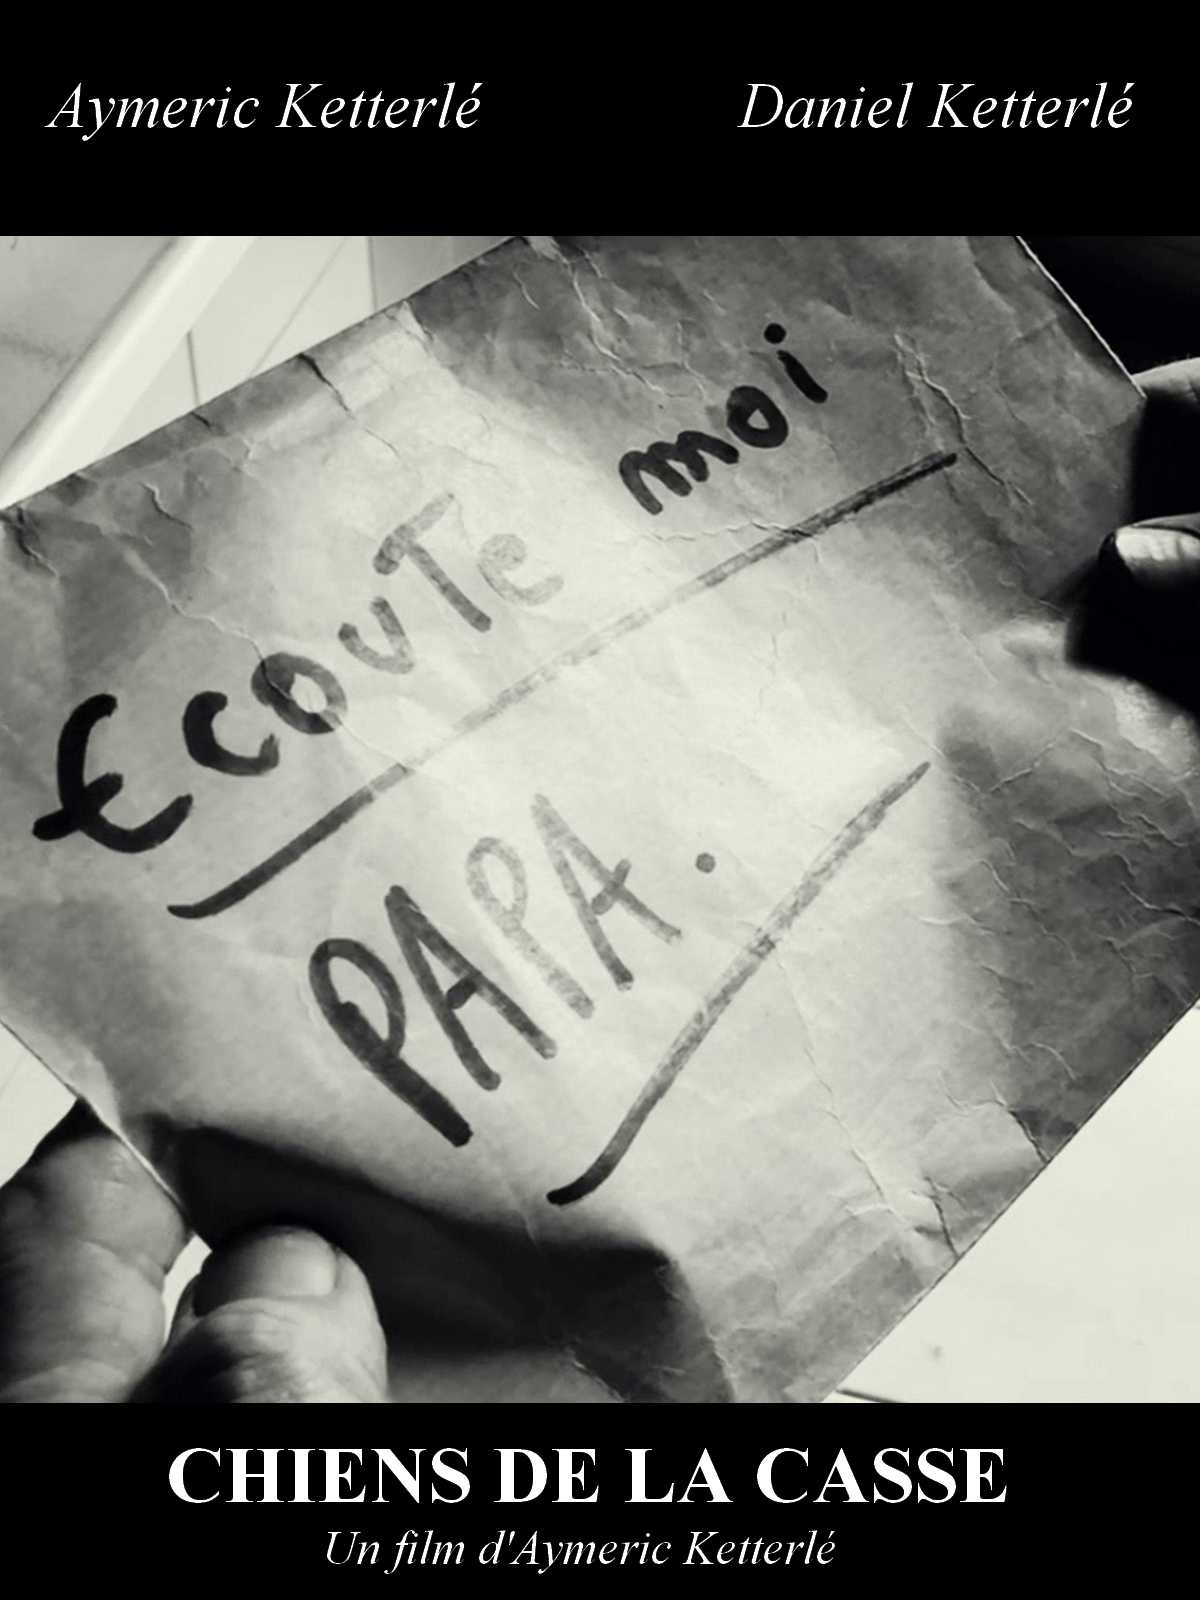 Aymeric Ketterlé
Daniel Ketterlé
Ecoute moi
PAPA.
CHIENS DE LA CASSE
Un film d'Aymeric Ketterlé